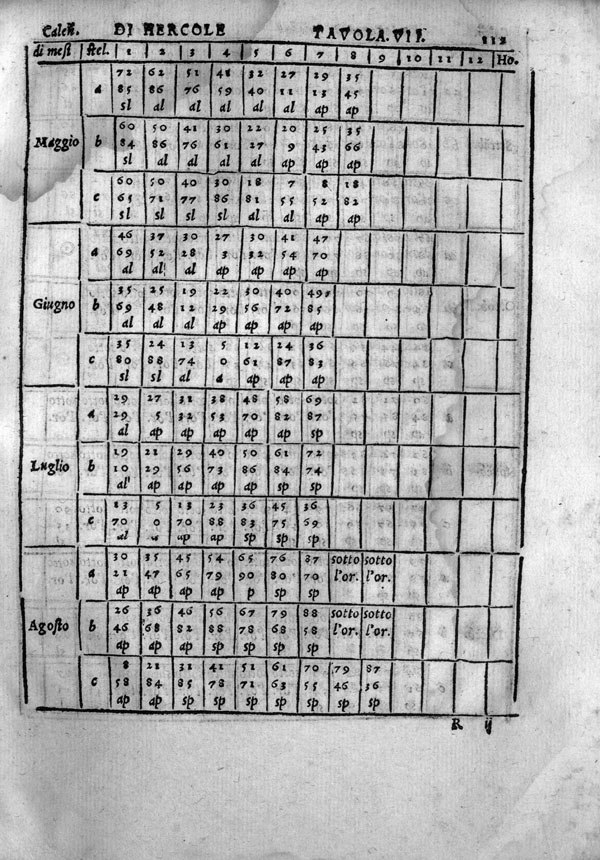 Calen. DI HERCOLE TAVOLA.VII. 112
di mesi stel. 1 2 3 4 5 6 7 8 9 10 11 12 Ho.
72 62 51 41 32 27 29 35
a 85 86 76 59 40 11 13 45
sl al al al al al ap ap
60 50 41 30 22 20 25 35
Maggio b 84 86 76 61 27 9 43 66
sl al al al al ap ap ap
60 50 40 30 18 7 8 18
c 65 71 77 86 81 55 52 82
sl sl sl sl al al ap ap
46 37 30 27 30 41 47
a 69 52 28 3 32 54 70
al al al ap ap ap ap
35 25 19 22 30 40 49
Giugno b 69 48 12 29 56 72 85
al al al ap ap ap ap
35 24 13 5 12 24 36
c 80 88 74 0 61 87 83
sl sl al a ap ap ap
29 27 31 38 48 58 69
a 29 5 32 53 70 82 87
al ap ap ap ap ap sp
19 21 29 40 50 61 72
Luglio b 10 29 56 73 86 84 74
al ap ap ap ap sp sp
13 5 13 23 36 45 36
c 70 0 70 88 83 75 69
al a ap ap sp sp sp
30 35 45 54 65 76 87 sotto sotto
a 21 47 65 79 90 80 70 l'or. l'or.
ap ap ap ap p sp sp
26 36 46 56 67 79 88 sotto sotto
Agosto b 46 68 82 88 78 68 58 l'or. l'or.
ap ap ap sp sp sp sp
8 21 31 41 51 61 70 79 87
c 58 84 85 78 71 63 55 46 36
ap ap sp sp sp sp sp sp sp
R ij